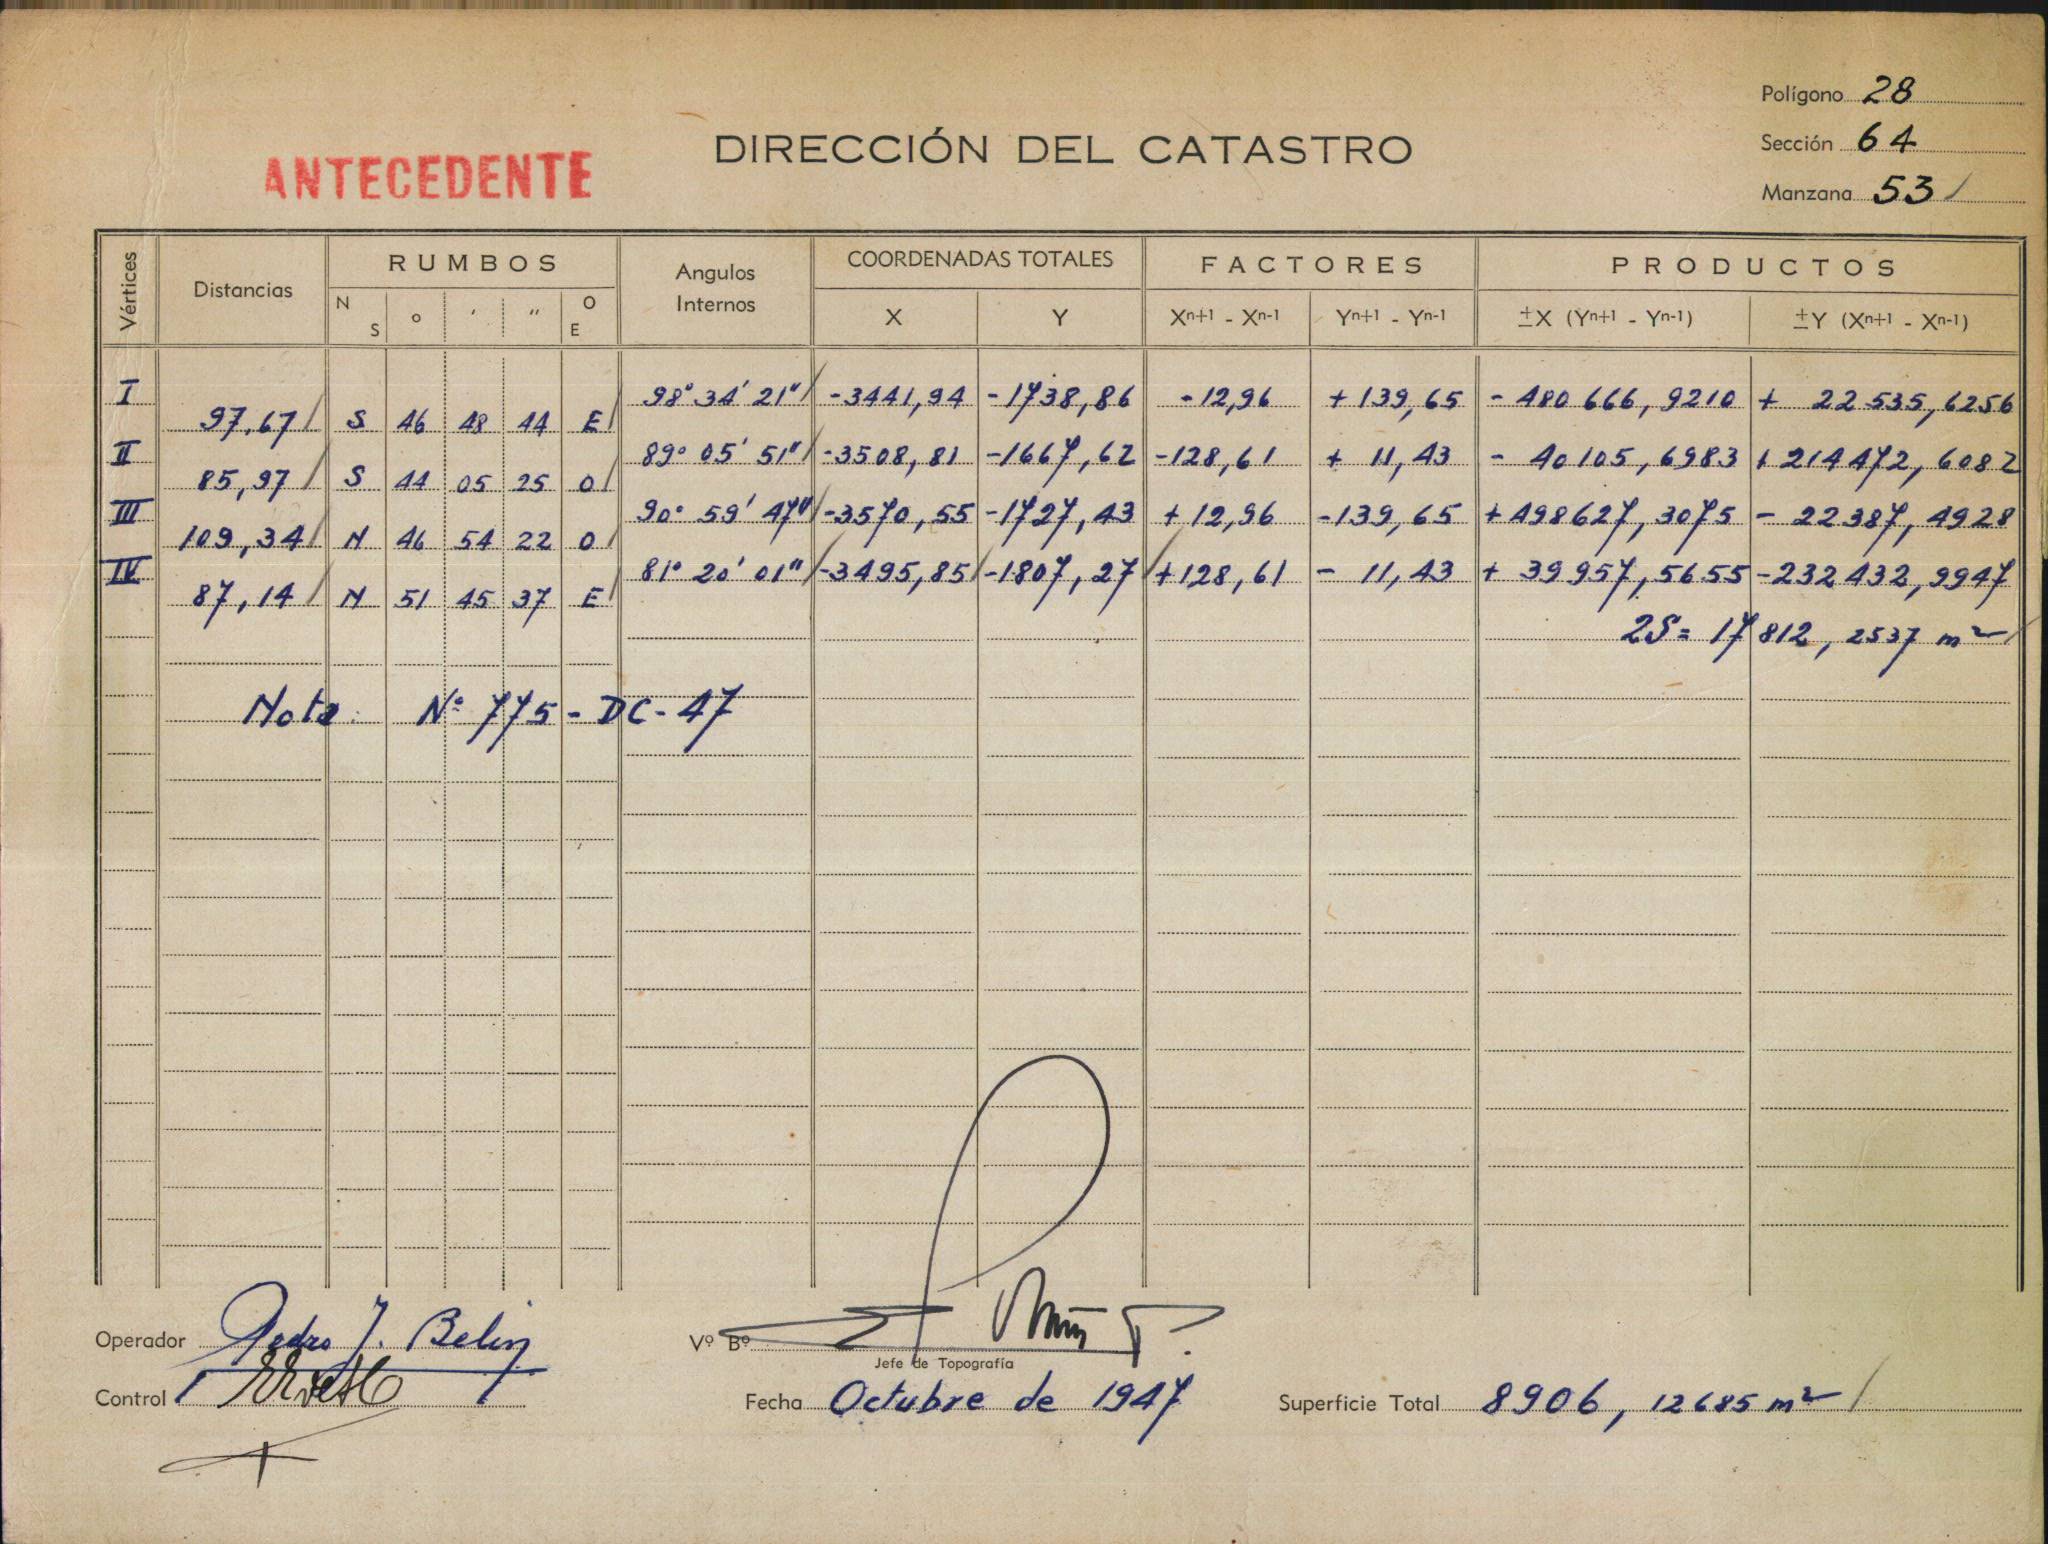 Polígono 28
ANTECEDENTE
DIRECCIÓN DEL CATASTRO
Sección 64
Manzana 53
Vértices Distancias RUMBOS Angulos Internos COORDENADAS TOTALES FACTORES PRODUCTOS
N S ° ′ ″ O E X Y Xn+1 - Xn-1 Yn+1 - Yn-1 ±X (Yn+1 - Yn-1) ±Y (Xn+1 - Xn-1)
I 98° 34' 21" -3441,94 -1738,86 -12,96 +139,65 - 480 666, 9210 + 22 535,6256
97,67 S 46 48 44 E
II 89° 05' 51" -3508,81 -1667,62 -128,61 + 11,43 - 40 105,6983 +214 472,6082
85,97 S 44 05 25 O
III 90° 59' 47" -3570,55 -1727,43 +12,96 -139,65 +498627,3075 - 22387,4928
109,34 N 46 54 22 O
IV 81° 20' 01" -3495,85 -1807,27 +128,61 - 11,43 + 39957,5655 -232 432,9947
87,14 N 51 45 37 E
2S = 17 812, 2537 m²
Nota: Nº 775 - DC - 47
Operador Pedro J. Belin
Vº Bº
Jefe de Topografía
Control
Fecha Octubre de 1947
Superficie Total 8906, 12685 m²